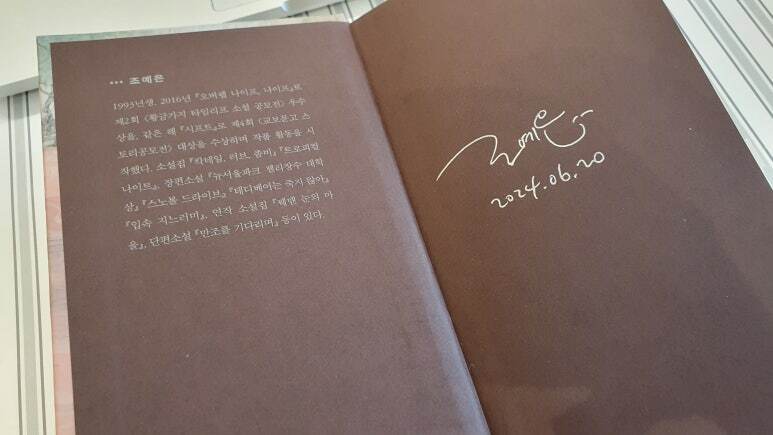 ••• 조예은
1993년생. 2016년 『오버랩 나이프, 나이프』로
제2회 〈황금가지 타임리프 소설 공모전〉 우수
상을, 같은 해 『시프트』로 제4회 〈교보문고 스
토리공모전〉 대상을 수상하며 작품 활동을 시
작했다. 소설집 『칵테일, 러브, 좀비』, 『트로피컬
나이트』, 장편소설 『뉴서울파크 젤리장수 대학
살』, 『스노볼 드라이브』, 『테디베어는 죽지 않아』,
『입속 지느러미』, 연작 소설집 『꿰맨 눈의 마
을』, 단편소설 『만조를 기다리며』 등이 있다.
조예은
2024.06.20